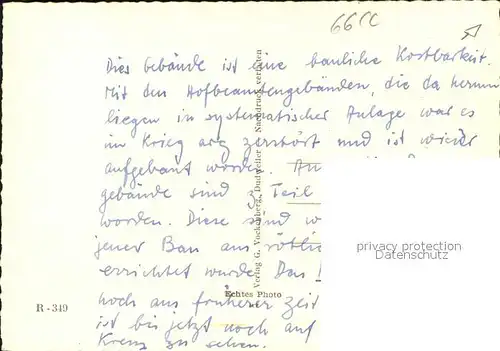 66cc
Dies Gebäude ist eine bauliche Kostbarkeit.
Mit den Hofbeamtengebäuden, die da herum
liegen in systematischer Anlage war es
im Krieg arg zerstört und ist wieder
aufgebaut worden.
gebäude sind z. Teil
worden. Diese sind
jener Bau aus rötlich
errichtet wurde. Das
noch aus früherer Zeit
ist bis jetzt noch auf
Kreuz zu sehen.
Verlag G. Vockenberg, Dudweiler Nachdruck verboten
R - 349
Echtes Photo
privacy protection
Datenschutz